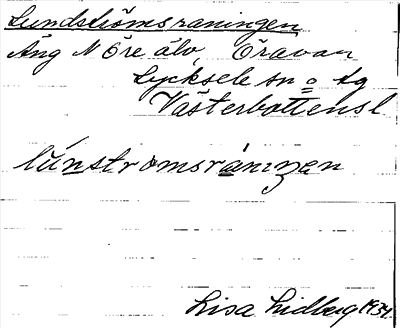 Lundströmsraningen
Äng N Öre älv, Öravan
Lycksele sn o tg
Västerbottensl
lúnstromsràninʒen
Lisa Lidberg 1934